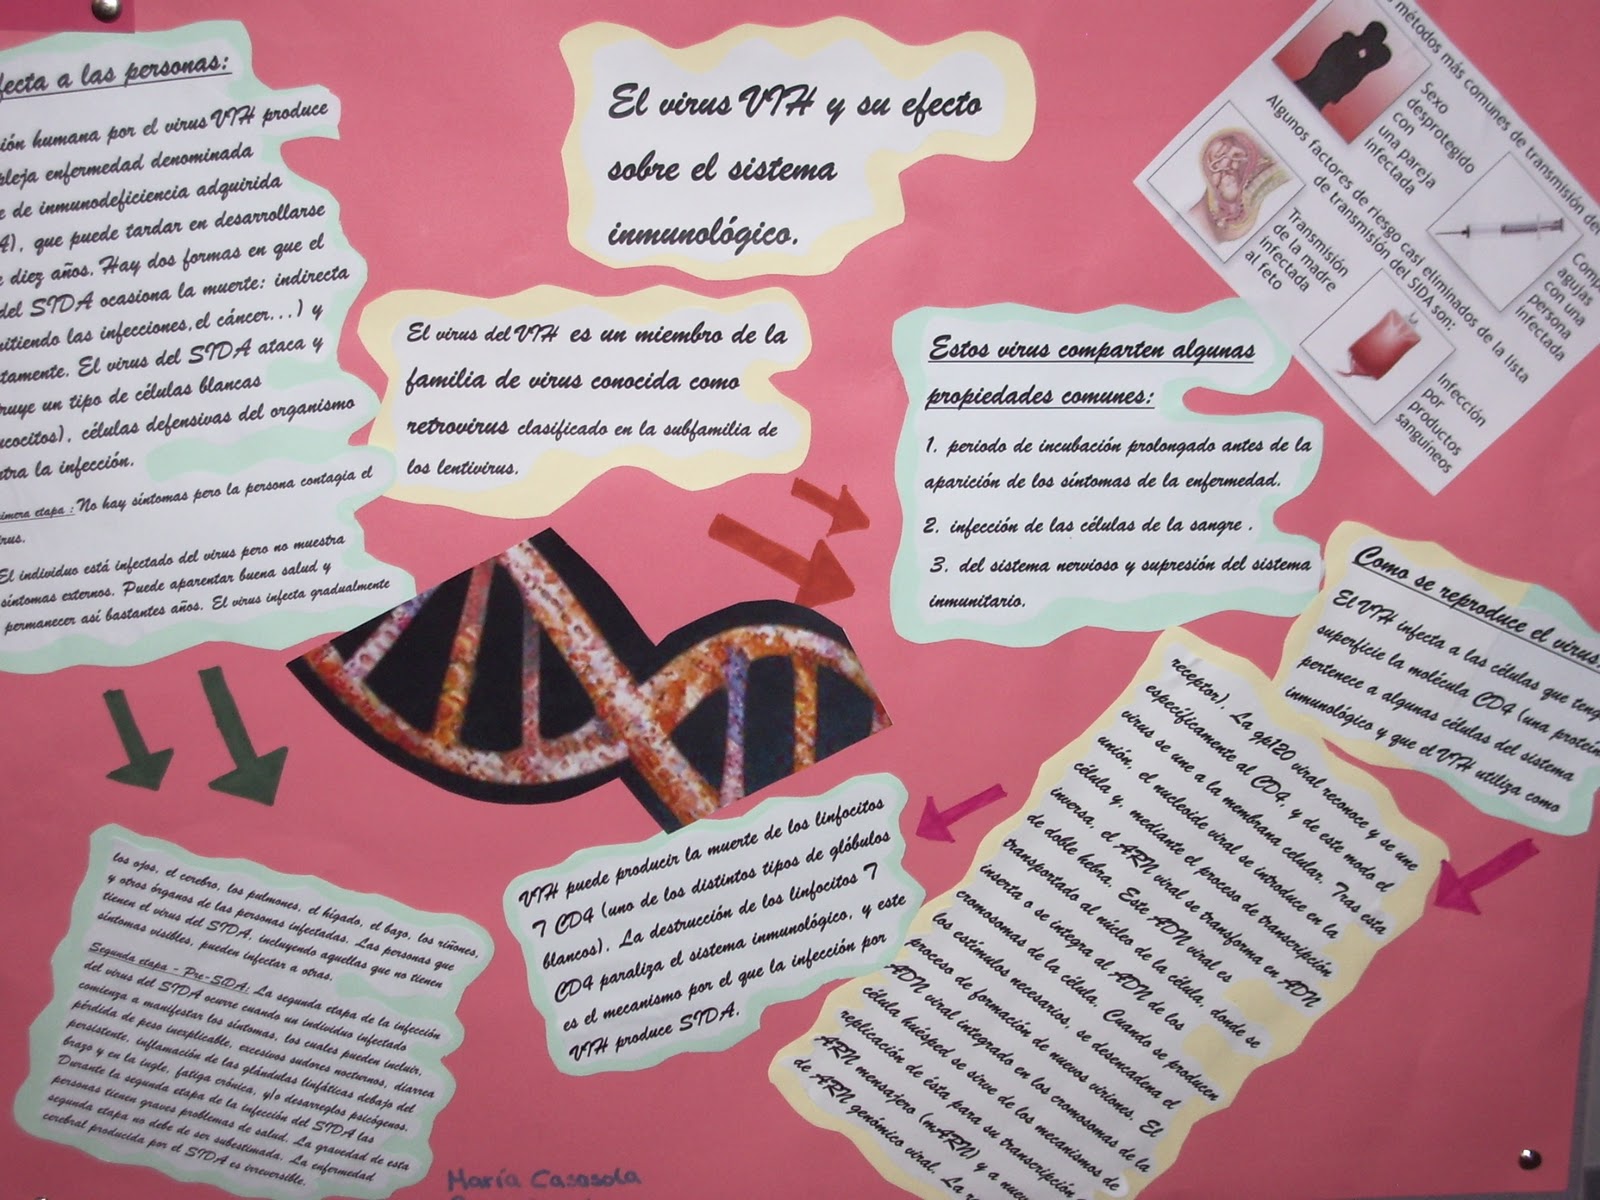 El virus VIH y su efecto
sobre el sistema
inmunológico.
fecta a las personas:
ión humana por el virus VIH produce
pleja enfermedad denominada
e de inmunodeficiencia adquirida
A), que puede tardar en desarrollarse
e diez años. Hay dos formas en que el
del SIDA ocasiona la muerte: indirecta
mitiendo las infecciones, el cáncer...) y
tamente. El virus del SIDA ataca y
ruye un tipo de células blancas
ucocitos), células defensivas del organismo
ntra la infección.
rimera etapa : No hay síntomas pero la persona contagia el
rus.
El individuo está infectado del virus pero no muestra
síntomas externos. Puede aparentar buena salud y
permanecer así bastantes años. El virus infecta gradualmente
los ojos, el cerebro, los pulmones, el hígado, el bazo, los riñones,
y otros órganos de las personas infectadas. Las personas que
tienen el virus del SIDA, incluyendo aquellas que no tienen
síntomas visibles, pueden infectar a otras.
Segunda etapa - Pre-SIDA: La segunda etapa de la infección
del virus del SIDA ocurre cuando un individuo infectado
comienza a manifestar los síntomas, los cuales pueden incluir,
pérdida de peso inexplicable, excesivos sudores nocturnos, diarrea
persistente, inflamación de las glándulas linfáticas debajo del
brazo y en la ingle, fatiga crónica, y/o desarreglos psicógenos.
Durante la segunda etapa de la infección del SIDA las
personas tienen graves problemas de salud. La gravedad de esta
segunda etapa no debe de ser subestimada. La enfermedad
cerebral producida por el SIDA es irreversible.
El virus del VIH es un miembro de la
familia de virus conocida como
retrovirus clasificado en la subfamilia de
los lentivirus.
Estos virus comparten algunas
propiedades comunes:
1. periodo de incubación prolongado antes de la
aparición de los síntomas de la enfermedad.
2. infección de las células de la sangre .
3. del sistema nervioso y supresión del sistema
inmunitario.
métodos más comunes de transmisión del
Sexo
desprotegido
con
una pareja
infectada
Comp
agujas
con una
persona
infectada
Algunos factores de riesgo casi eliminados de la lista
de transmisión del SIDA son:
Transmisión
de la madre
infectada
al feto
Infección
por
productos
sanguíneos
Como se reproduce el virus:
El VIH infecta a las células que teng
superficie la molécula CD4 (una proteín
pertenece a algunas células del sistema
inmunológico y que el VIH utiliza como
receptor). La gp120 viral reconoce y se une
específicamente al CD4, y de este modo el
virus se une a la membrana celular. Tras esta
unión, el nucleoide viral se introduce en la
célula y, mediante el proceso de transcripción
inversa, el ARN viral se transforma en ADN
de doble hebra. Este ADN viral es
transportado al núcleo de la célula, donde se
inserta o se integra al ADN de los
cromosomas de la célula. Cuando se producen
los estímulos necesarios, se desencadena el
proceso de formación de nuevos viriones. El
ADN viral integrado en los cromosomas de la
célula huésped se sirve de los mecanismos de
replicación de ésta para su transcripción
ARN mensajero (mARN) y a nuev
de ARN genómico viral. La
VIH puede producir la muerte de los linfocitos
7 CD4 (uno de los distintos tipos de glóbulos
blancos). La destrucción de los linfocitos 7
CD4 paraliza el sistema inmunológico, y este
es el mecanismo por el que la infección por
VIH produce SIDA.
María Casasola